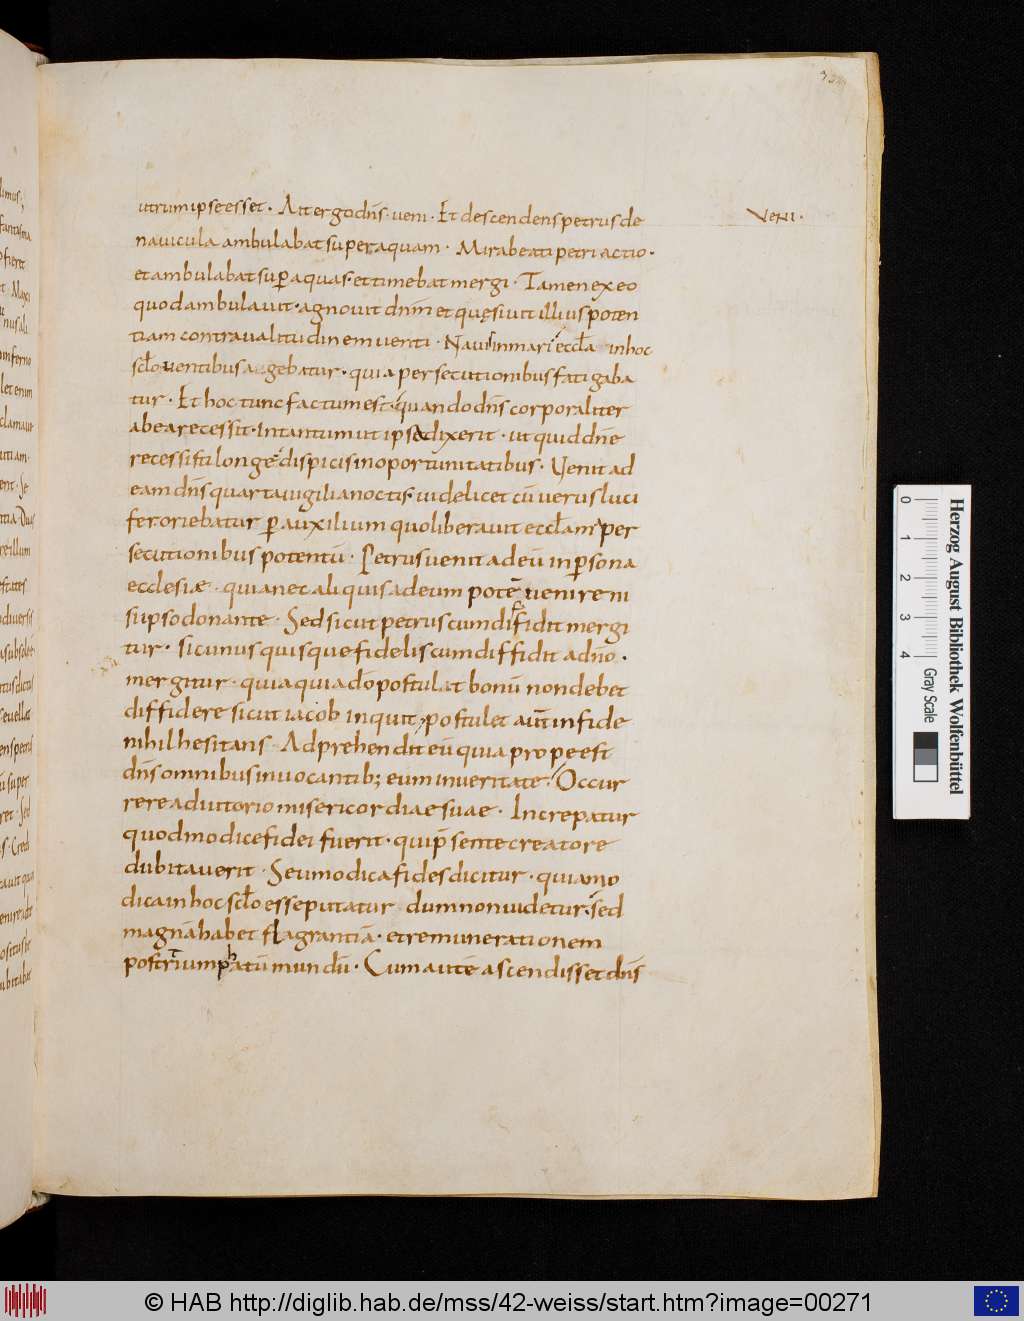 utrum ipse esset. Ait ergo dn̅s. ueni. Et descendens petrus de
Veni.
nauicula ambulabat super aquam. Mirabeati petri actio.
et ambulabat sup̅ aquas. et timebat mergi. Tamen ex eo
quod ambulauit. agnouit dn̅m et quęsiuit illius poten
tiam contra ualitudinem uenti. Nauis in mari eccl̅a in hoc
scl̅o uentibus a gebatur. quia persecutionibus fatigaba
tur. Et hoc tunc factum est. quando dn̅s corporaliter
ab ea recessit. Intantum ut ipsa dixerit. ut quid dn̅e
recessisti longe dispicis in oportunitatibus. Uenit ad
eam dn̅s quarta uigilia noctis. uidelicet cū uerus luci
fer oriebatur p̅ auxilium quo liberauit eccl̅am per
secutionibus potentū. Petrus uenit ad eū in p̅sona
ecclesiæ. quia nec aliquis ad eum potē uenire ni
si ipso donante. Sed sicut petrus cum diffidit mergi
tur. sic unus quisque fidelis cum diffidit a dn̅o.
mergitur. quia qui a dō postulat bonū non debet
diffidere sicut iacob inquit, postulet aut̅ in fide
nihil hesitans. Adprehendit eū quia prope est
dn̅s omnibus inuocantib; eum in ueritate. Occur
rere adiutorio misericordiae suae. Increpatur
quod modice fidei fuerit. qui p̅sente creatore
dubitauerit. Seu modica fides dicitur. quia mo
dica in hoc scl̅o esse putatur dum non uidetur. sed
magnā habet flagrantiā. et remunerationem
post triumphatū mundū. Cum autē ascendisset dn̅s
Herzog August Bibliothek Wolfenbüttel
0 1 2 3 4
Gray Scale
© HAB http://diglib.hab.de/mss/42-weiss/start.htm?image=00271